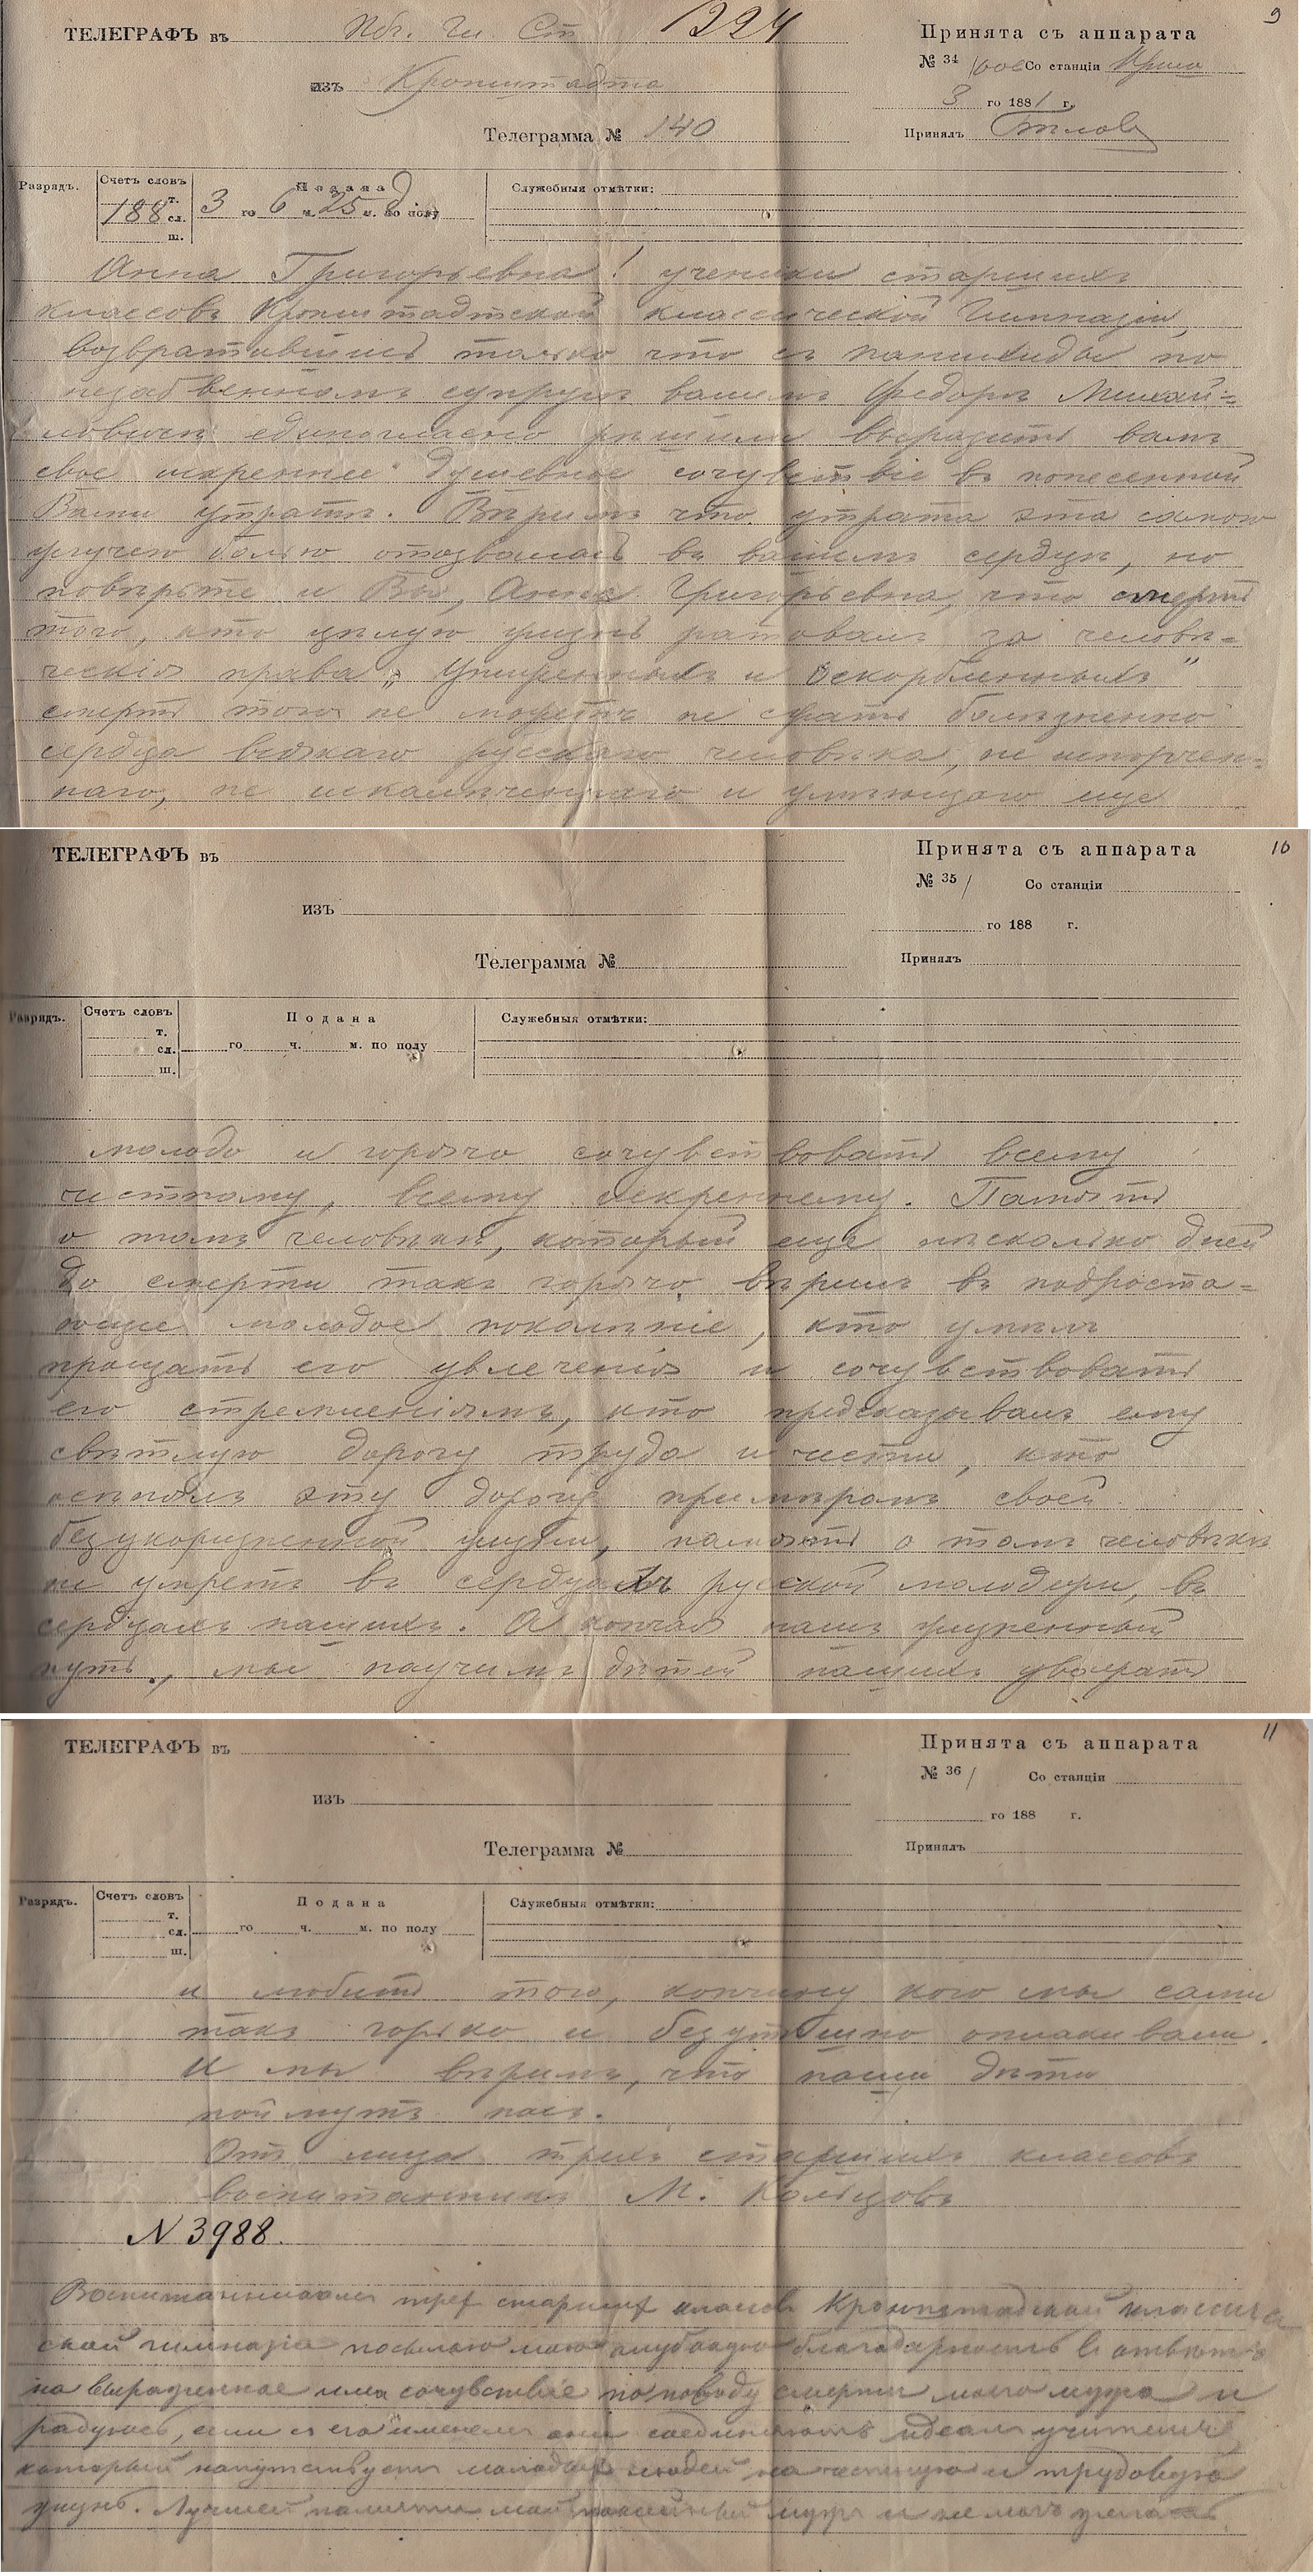 9
ТЕЛЕГРАФЪ въ Пбг. Гл. Ст 1224
Принята съ аппарата
№ 34 Со станціи
изъ Кронштадта
3 го 1881 г.
Телеграмма № 140
Принялъ
Разрядъ. Счетъ словъ Подана Служебныя отмѣтки:
т.
188 сл. 3 го 6 ч. 25 м. по полу д
ш.
Анна Григорьевна! ученики старшихъ
классовъ Кронштадтской классической Гимназіи,
возвратившись только что съ панихиды по
незабвенномъ супругѣ вашемъ Федорѣ Михай=
ловичѣ единогласно рѣшили выразить вамъ
свое искреннее душевное сочувствіе въ понесенной
Вами утратѣ. Вѣримъ что утрата эта самою
жгучею болью отозвалась въ вашемъ сердцѣ, но
повѣрьте и Вы, Анна Григорьевна, что смерть
того, кто цѣлую жизнь ратовалъ за человѣ=
ческія права „Униженныхъ и Оскорбленныхъ"
смерть того не можетъ не сжать болѣзненно
сердца всякаго русскаго человѣка, не испорчен=
наго, не искалѣченнаго и умѣющаго еще
10
ТЕЛЕГРАФЪ въ
Принята съ аппарата
№ 35 / Со станціи
изъ
го 188 г.
Телеграмма №
Принялъ
Разрядъ. Счетъ словъ Подана Служебныя отмѣтки:
т.
сл. го ч. м. по полу
ш.
молодо и горячо сочувствовать всему
честному, всему искреннему. Память
о томъ человѣкѣ, который еще нѣсколько дней
до смерти такъ горячо вѣрилъ въ подроста=
ющее молодое поколѣніе, кто умѣлъ
прощать его увлеченія и сочувствовать
его стремленіямъ, кто предсказывалъ ему
свѣтлую дорогу труда и чести, кто
освѣтилъ эту дорогу примѣромъ своей
безукоризненной жизни, память о томъ человѣкѣ
не умретъ въ сердцахъ русской молодежи, въ
сердцахъ нашихъ. А кончая нашъ жизненный
путь, мы научимъ дѣтей нашихъ уважать
11
ТЕЛЕГРАФЪ въ
Принята съ аппарата
№ 36 / Со станціи
изъ
го 188 г.
Телеграмма №
Принялъ
Разрядъ. Счетъ словъ Подана Служебныя отмѣтки:
т.
сл. го ч. м. по полу
ш.
и любить того, кончину кого мы сами
такъ горько и безутѣшно оплакивали.
И мы вѣримъ, что наши дѣти
поймутъ насъ.
Отъ лица трехъ старшихъ классовъ
воспитанникъ М. Кольцовъ
N 3988.
Воспитанникамъ трех старших классовъ Кронштадтской классиче
ской гимназіи посылаю мою глубокую благодарность въ отвѣтъ
на выраженное ими сочувствіе по поводу смерти моего мужа и
радуюсь, если съ его именемъ они соединяютъ идеалъ учителя,
который напутствуетъ молодыхъ людей на честную и трудовую
жизнь. Лучшей памяти мой покойный мужъ и не могъ желать.